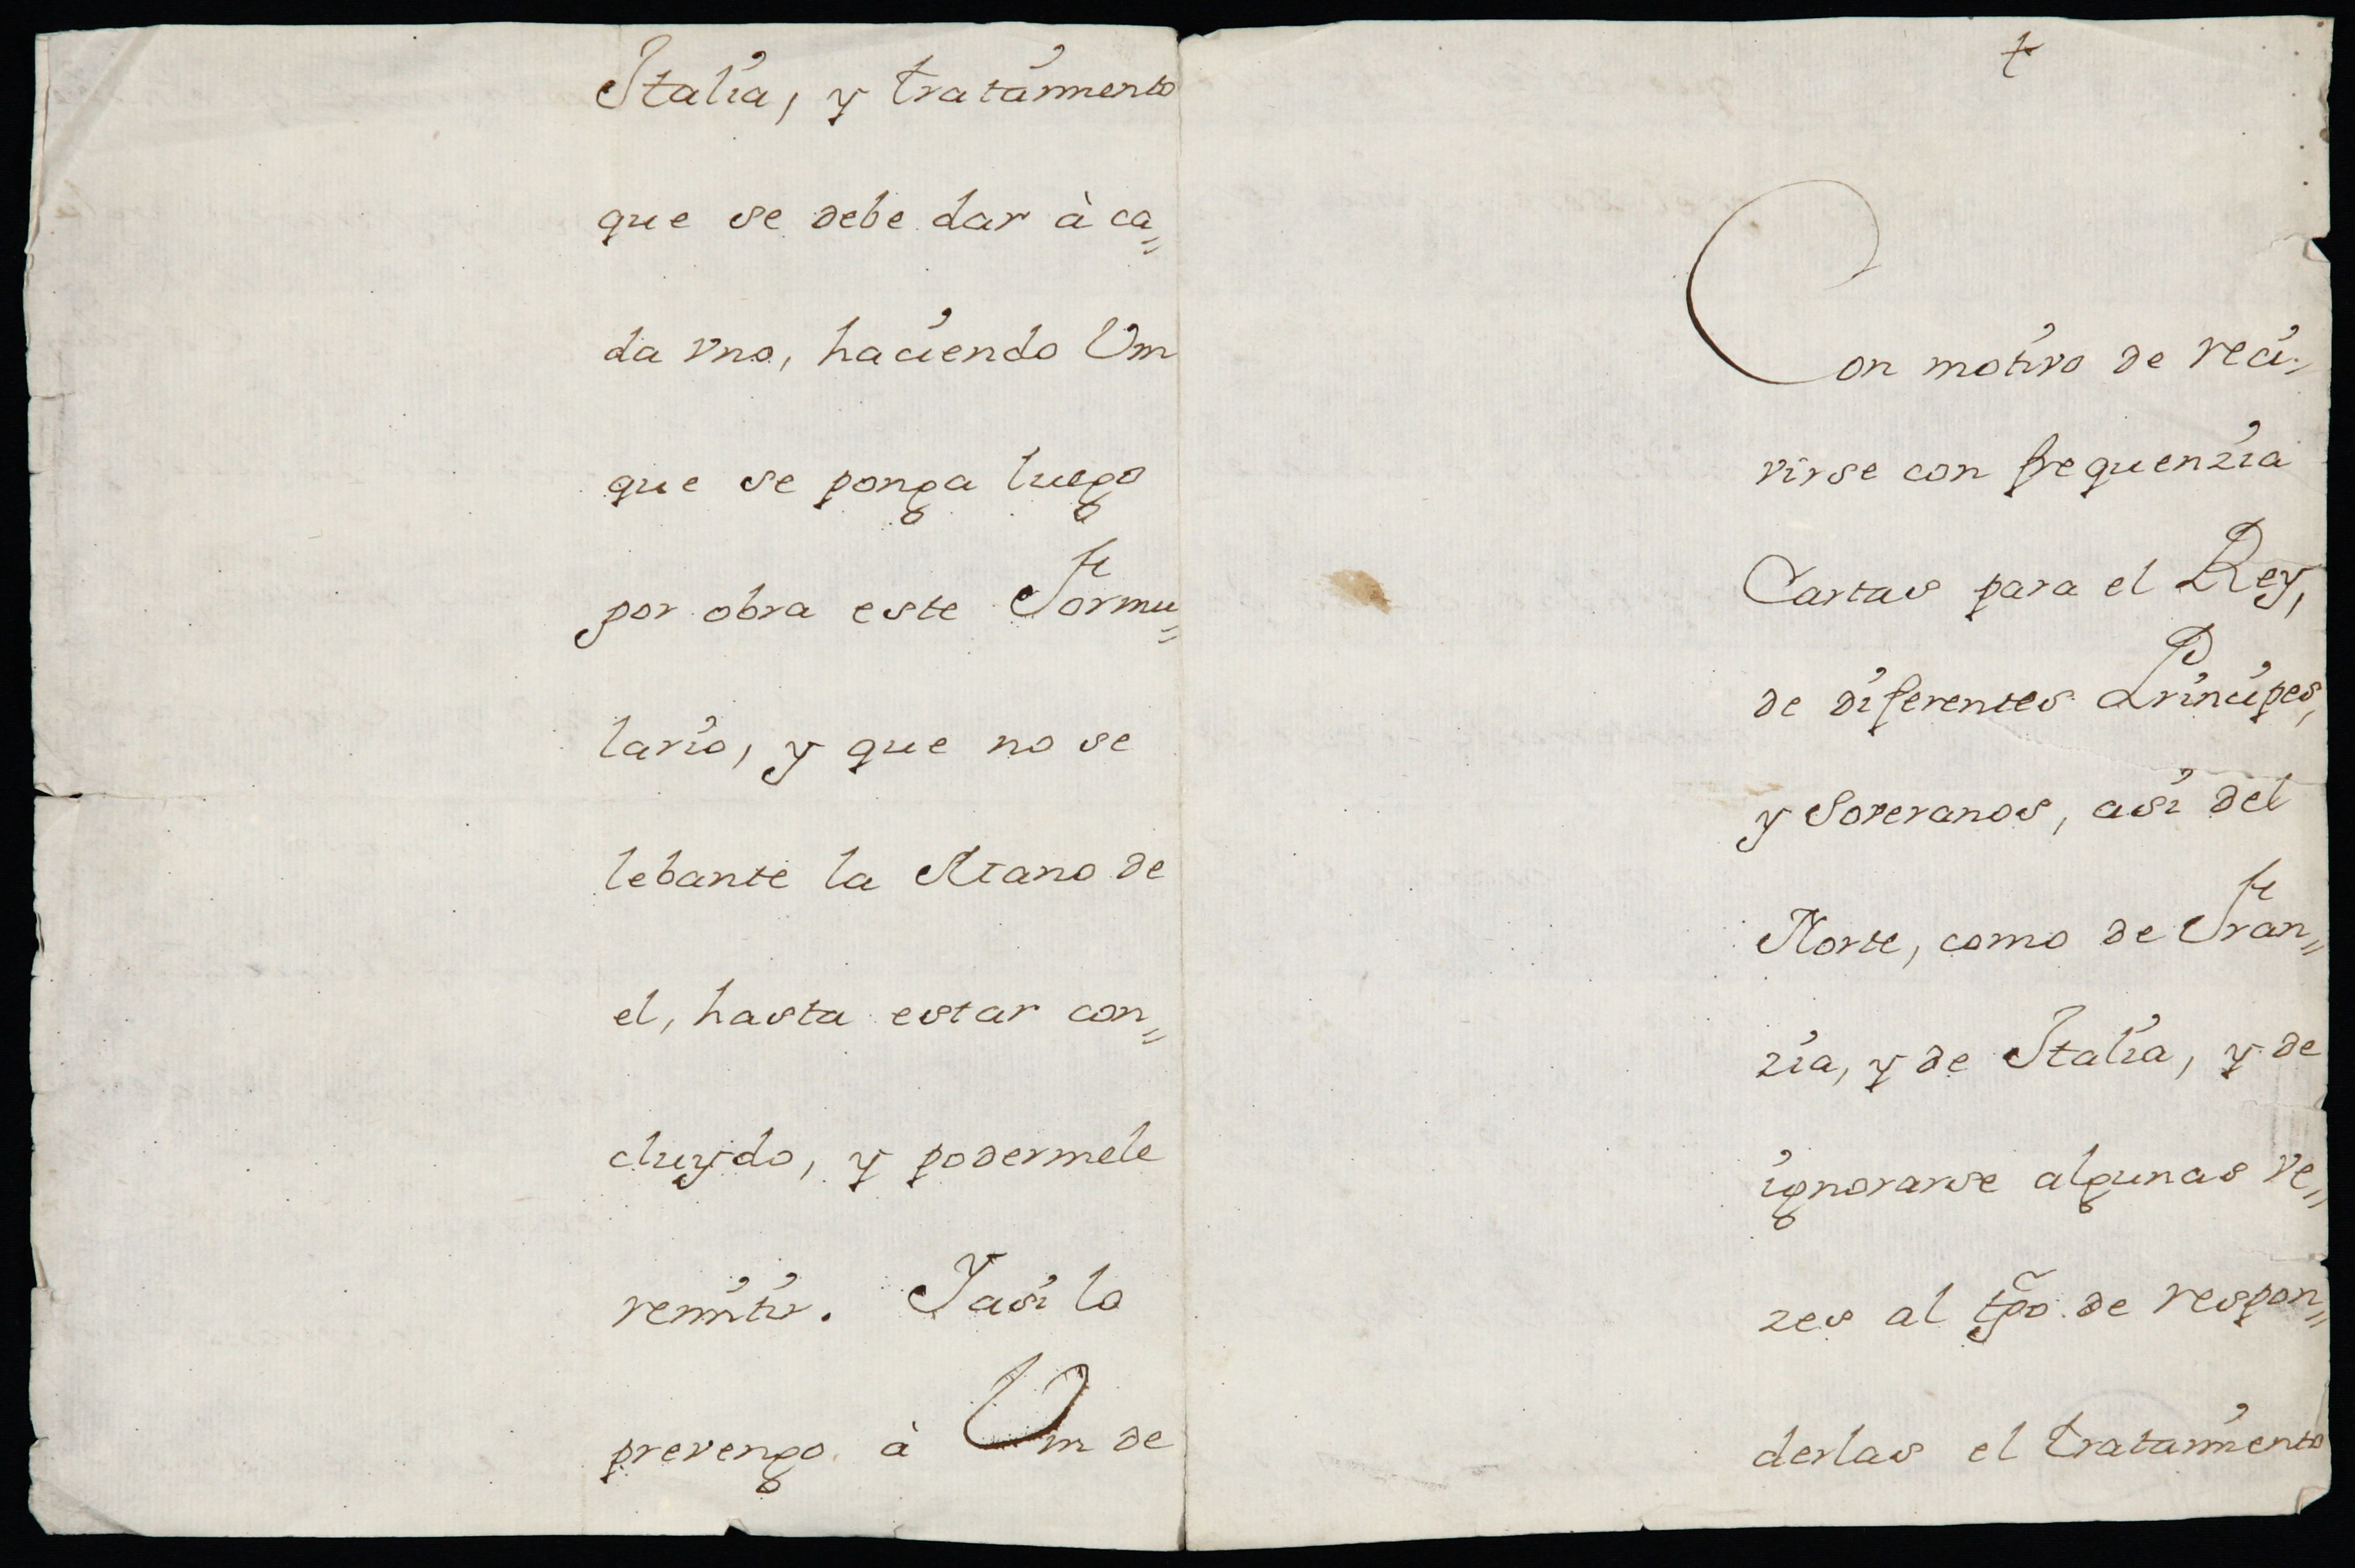 Italia, y tratamiento
que se debe dar à ca=
da vno, haciendo Vm
que se ponga luego
por obra este Formu=
lario, y que no se
lebante la Mano de
el, hasta estar con=
cluydo, y podermele
remitir. Y asi lo
prevengo à Vm de
Con motivo de reci=
virse con frequenzia
Cartas para el Rey,
de diferentes Principes,
y Soveranos, asi del
Norte, como de Fran=
zia, y de Italia, y de
ignorarse algunas ve=
zes al tpõ de respon=
derlas el tratamiento